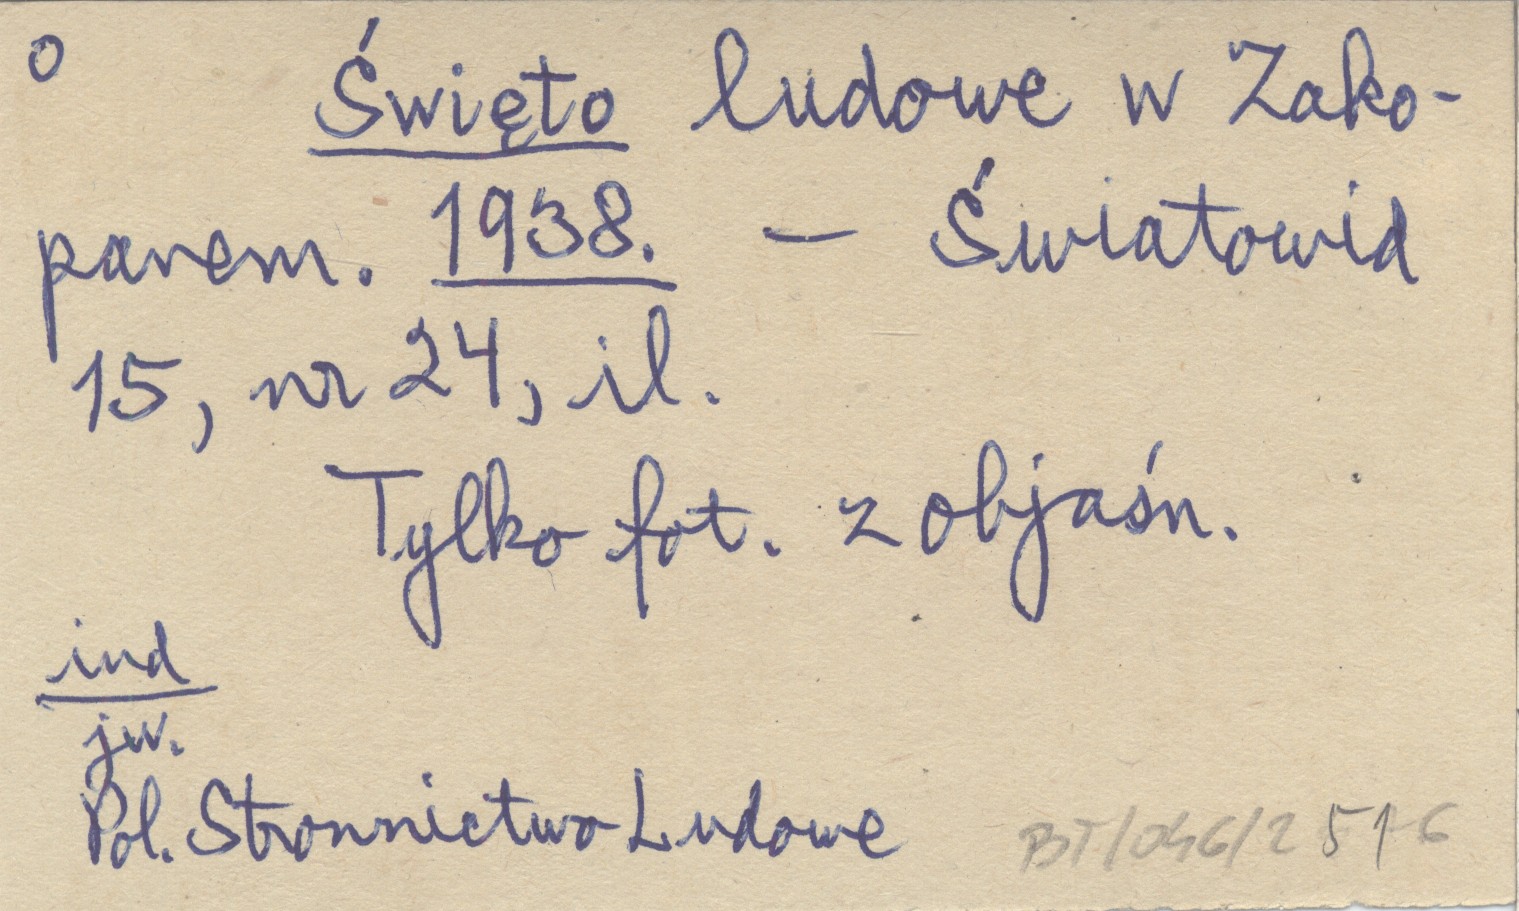 o
Święto ludowe w Zako-
panem. 1938. — Światowid
15, nr 24, il.
Tylko fot. z objaśn.
ind
jw.
Pol. Stronnictwo Ludowe
BT/046/2516